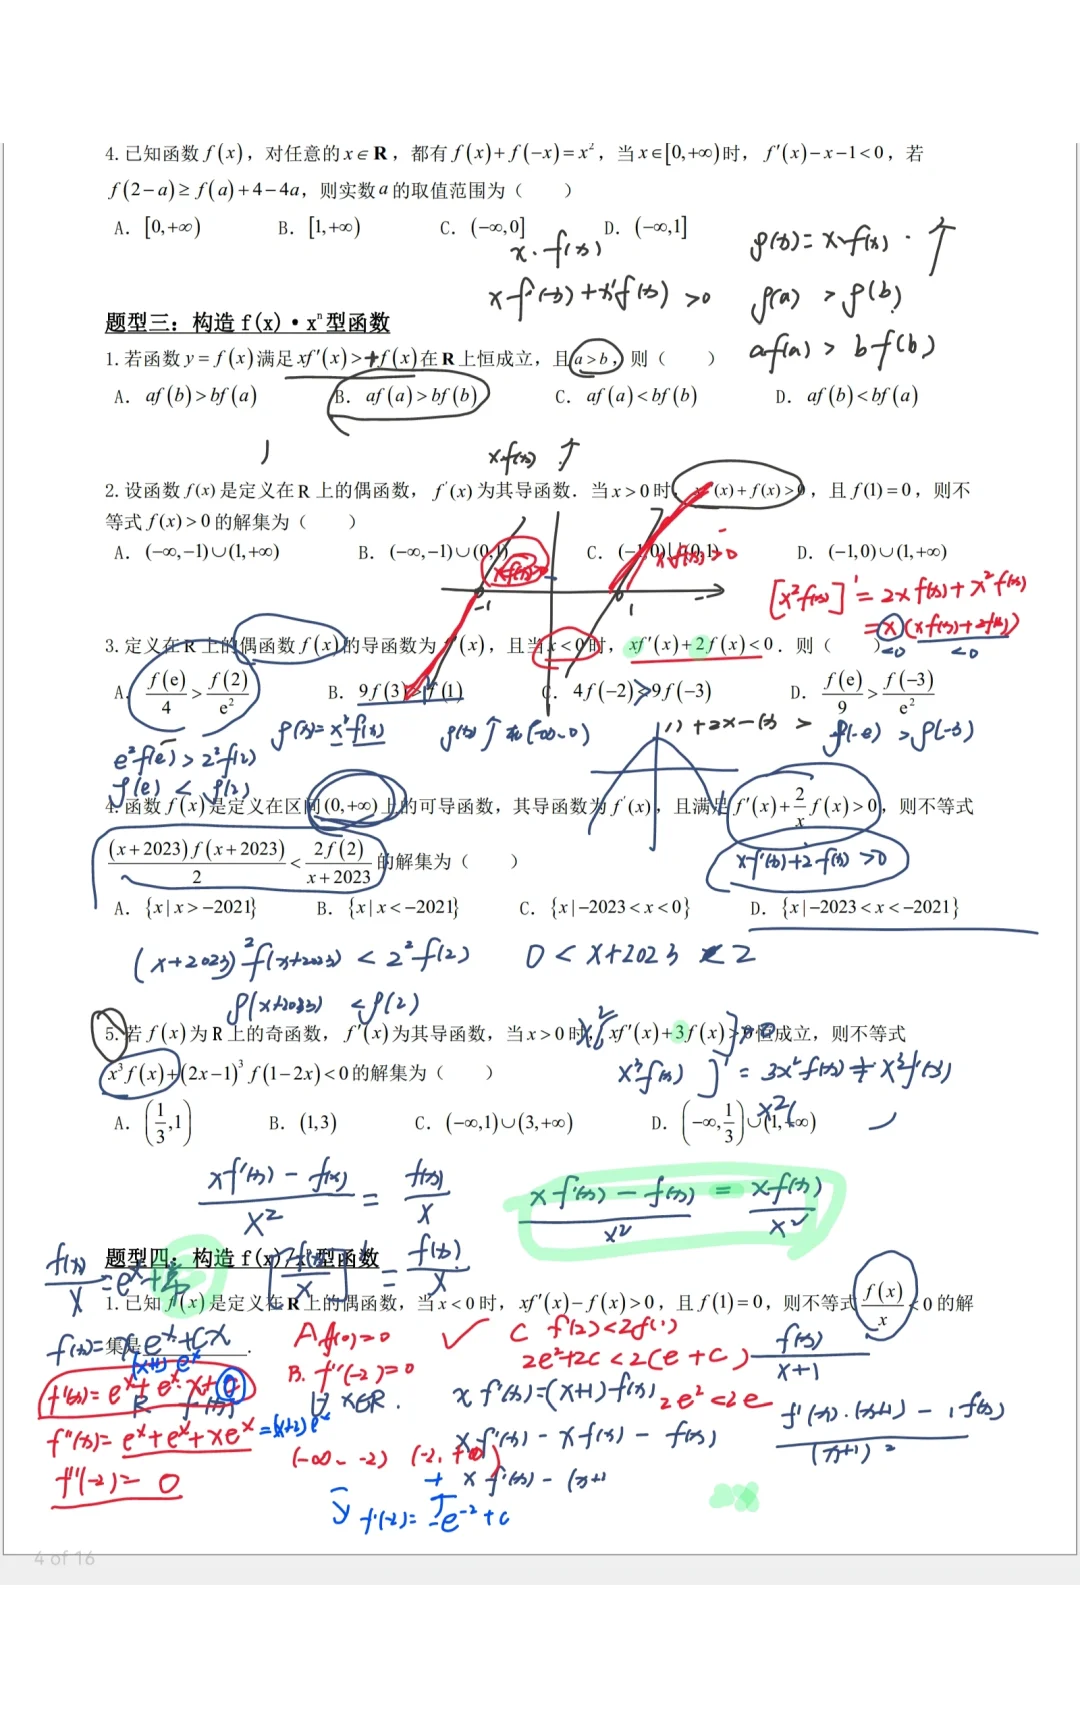 4. 已知函数 f(x)，对任意的 x∈R，都有 f(x)+f(−x)=x²，当 x∈[0,+∞) 时，f′(x)−x−1<0，若
f(2−a)≥f(a)+4−4a，则实数 a 的取值范围为（　　）
A. [0,+∞)　B. [1,+∞)　C. (−∞,0]　D. (−∞,1]
x·f(x)
g(x)=x·f(x) · ↑
xf′(x)+x′f(x)>0
g(a)>g(b)
题型三：构造 f(x)·xⁿ型函数
af(a)>bf(b)
1. 若函数 y=f(x) 满足 xf′(x)>+f(x) 在 R 上恒成立，且 a>b，则（　　）
A. af(b)>bf(a)　B. af(a)>bf(b)　C. af(a)<bf(b)　D. af(b)<bf(a)
xf(x) ↑
2. 设函数 f(x) 是定义在 R 上的偶函数，f′(x) 为其导函数．当 x>0 时，(x)+f(x)>0，且 f(1)=0，则不
等式 f(x)>0 的解集为（　　）
A. (−∞,−1)∪(1,+∞)　B. (−∞,−1)∪(0,1)　C. (−1,0)∪(0,1)　D. (−1,0)∪(1,+∞)
−1　1
[x²f(x)]′=2xf(x)+x²f(x)
=x(xf(x)+2f(x))
<0　<0
3. 定义在 R 上的偶函数 f(x) 的导函数为 f′(x)，且当 x<0 时，xf′(x)+2f(x)<0．则（　　）
A. f(e)/4>f(2)/e²　B. 9f(3)>f(1)　C. 4f(−2)>9f(−3)　D. f(e)/9>f(−3)/e²
g(x)=x²f(x)
e²f(e)>2²f(2)
g(−e)>g(−3)
g(e)<g(2)
4. 函数 f(x) 是定义在区间 (0,+∞) 上的可导函数，其导函数为 f′(x)，且满足 f′(x)+2/x f(x)>0，则不等式
(x+2023)f(x+2023)/2<2f(2)/(x+2023) 的解集为（　　）
xf′(x)+2f(x)>0
A. {x|x>−2021}　B. {x|x<−2021}　C. {x|−2023<x<0}　D. {x|−2023<x<−2021}
(x+2023)²f(x+2023)<2²f(2)　0<x+2023<2
g(x+2023)<g(2)
5. 若 f(x) 为 R 上的奇函数，f′(x) 为其导函数，当 x>0 时，xf′(x)+3f(x)>0 恒成立，则不等式
x³f(x)+(2x−1)³f(1−2x)<0 的解集为（　　）
x³f(x)]′=3x²f(x)+x³f′(x)
A. (1/3,1)　B. (1,3)　C. (−∞,1)∪(3,+∞)　D. (−∞,1/3)∪(1,+∞)
x²(
(xf′(x)−f(x))/x²=f(x)/x
(xf′(x)−f(x))/x²=xf(x)/x²
题型四：构造 f(x)/xⁿ型函数
f(x)/x=eˣ+常
1. 已知 f(x) 是定义在 R 上的偶函数，当 x<0 时，xf′(x)−f(x)>0，且 f(1)=0，则不等式 f(x)/x<0 的解
集是
f(x)=xeˣ+cx
(x+1)eˣ
A f(0)=0
C f(2)<2f(1)
2e²+2c<2(e+c)
f(x)/(x+1)
f′(x)=eˣ+eˣ·x+c
B. f″(−2)=0
x∈R.
xf′(x)=(x+1)f(x)
2e²<2e
(f′(x)·(x+1)−1f(x))/(x+1)²
f″(x)=eˣ+eˣ+xeˣ=(x+2)eˣ
xf′(x)−xf(x)−f(x)
(−∞,−2)　(−2,+∞)
f″(−2)=0
xf′(x)−(x+1
f′(−2)=−e⁻²+c
4 of 16